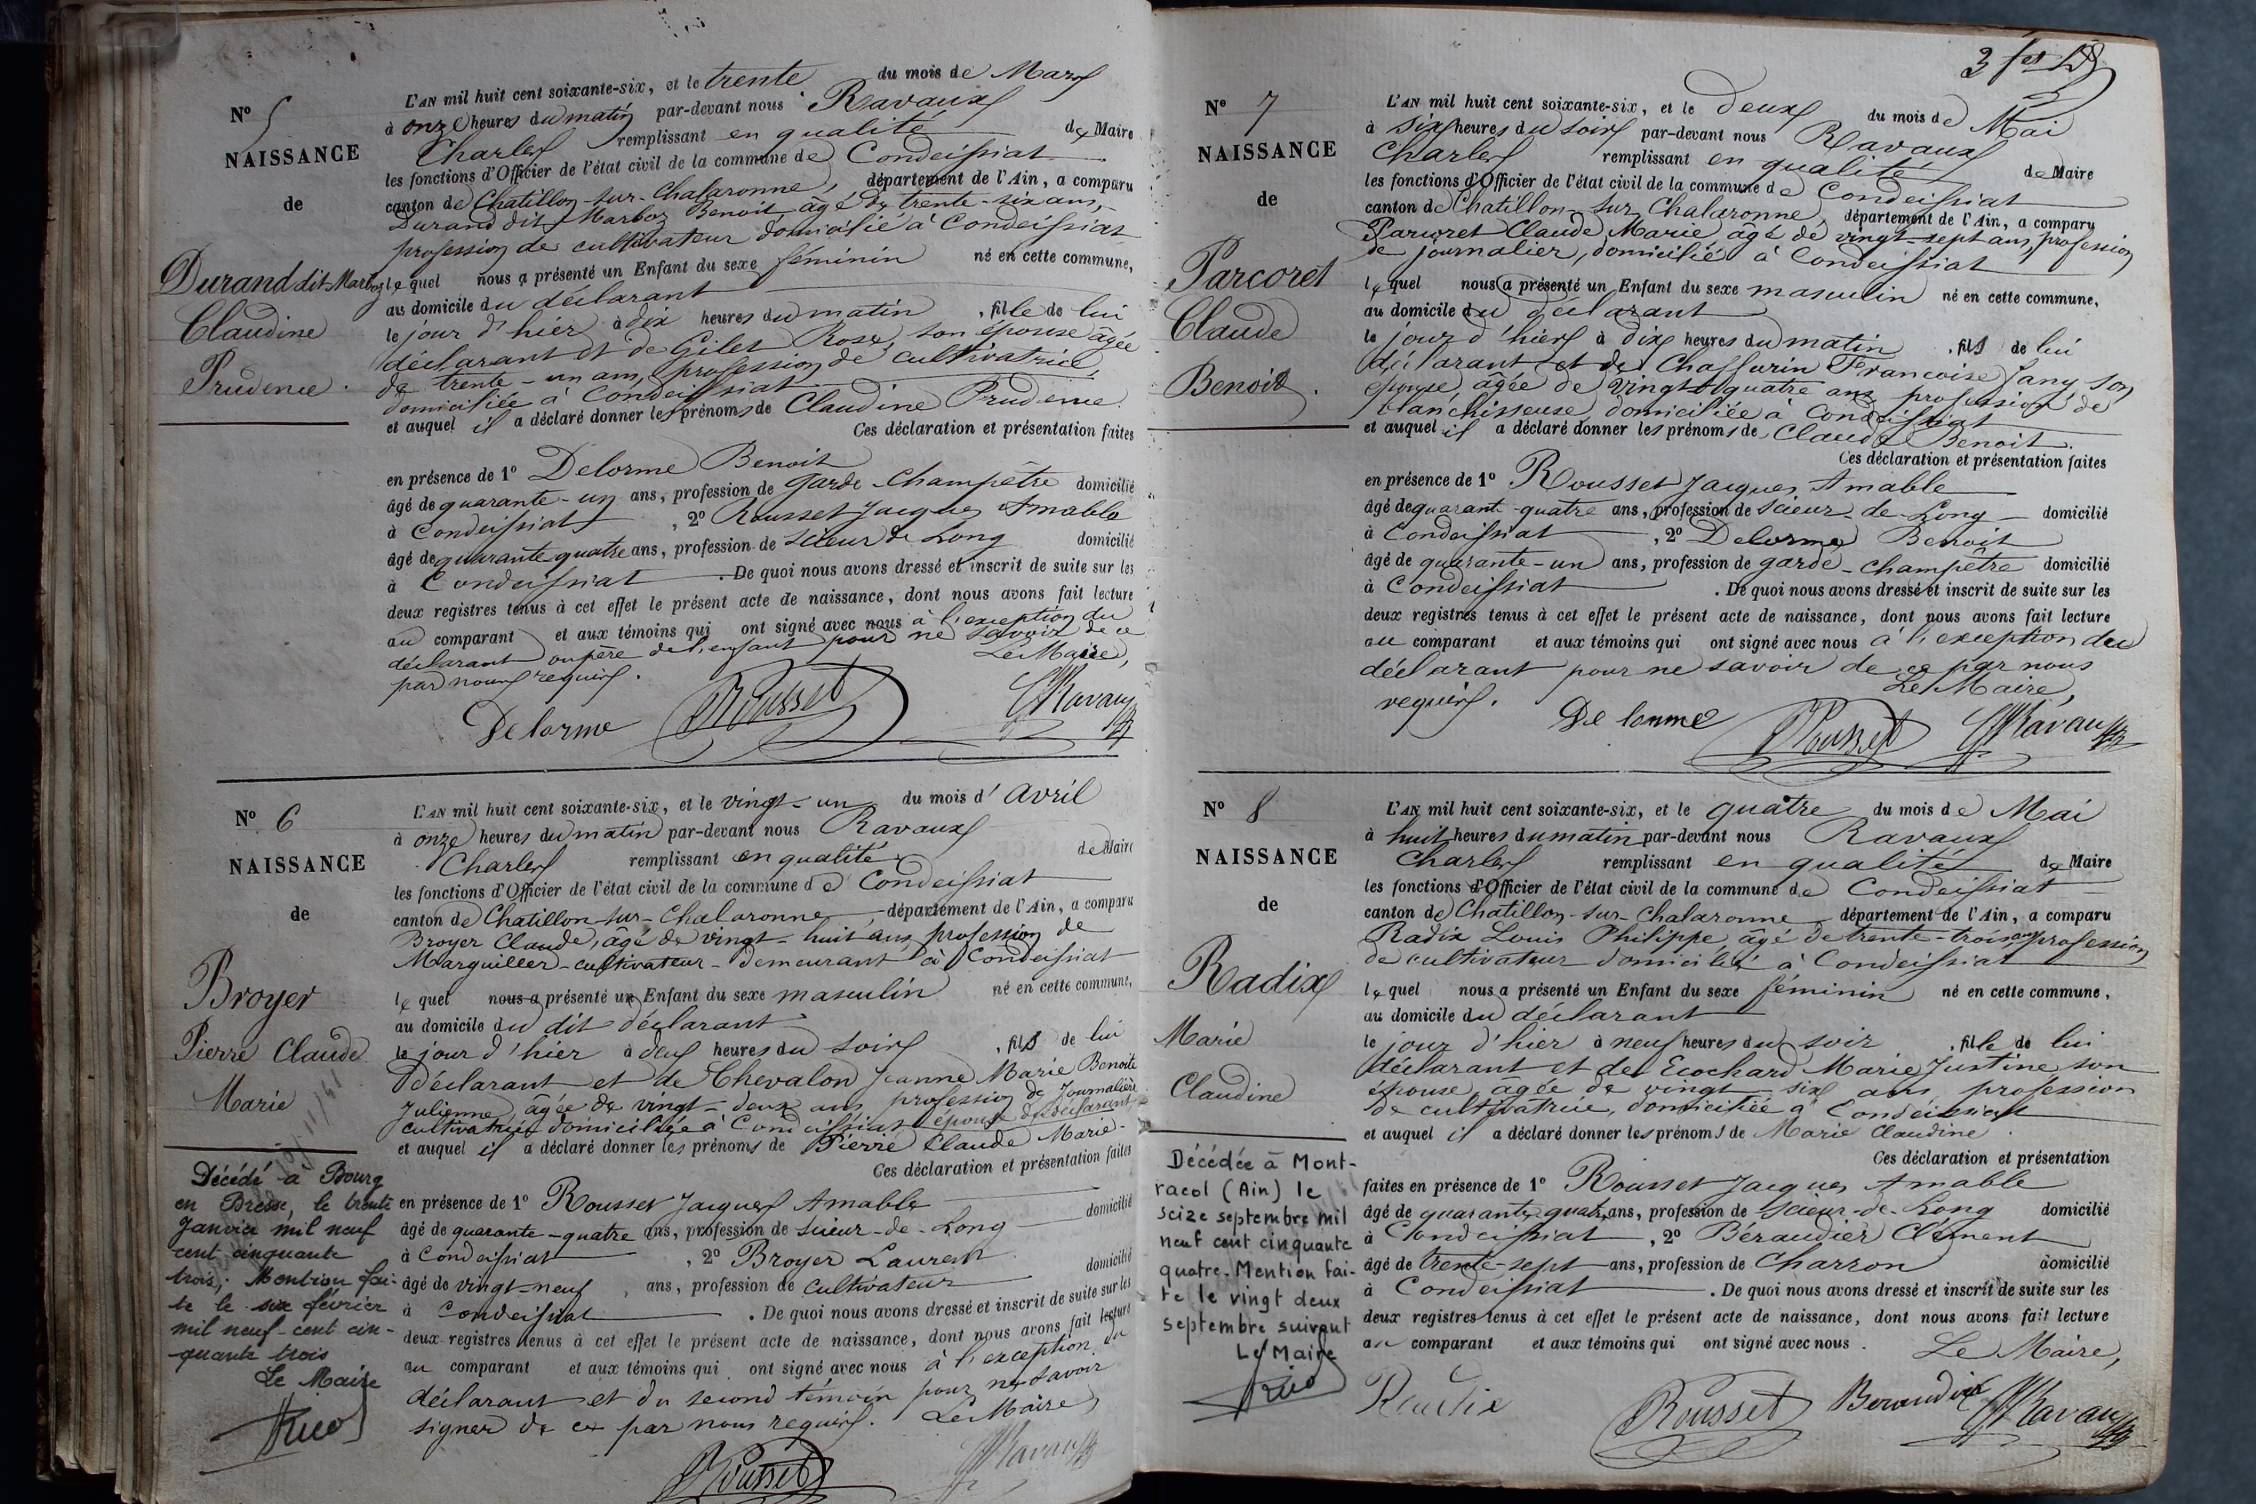 No 5
NAISSANCE
de
Durand dit Marboz
Claudine
Prudence.
L'AN mil huit cent soixante-six, et le trente du mois de Mars
à onze heures du matin par-devant nous Ravaux
Charles remplissant en qualité de Maire
les fonctions d'Officier de l'état civil de la commune de Condeissiat
canton de Chatillon-sur-Chalaronne, département de l'Ain, a comparu
Durand dit Marboz Benoit, âgé de trente-six ans,
profession de cultivateur domicilié à Condeissiat
lequel nous a présenté un Enfant du sexe féminin né en cette commune,
au domicile du déclarant
le jour d'hier à dix heures du matin, fille de lui
déclarant et de Gilet Rose, son épouse âgée
de trente-un ans, profession de cultivatrice,
domiciliée à Condeissiat
et auquel il a déclaré donner les prénoms de Claudine Prudence.
Ces déclaration et présentation faites
en présence de 1o Delorme Benoit
âgé de quarante-un ans, profession de garde-champêtre domicilié
à Condeissiat, 2o Rousset Jacques Amable
âgé de quarante-quatre ans, profession de scieur de Long domicilié
à Condeissiat. De quoi nous avons dressé et inscrit de suite sur les
deux registres tenus à cet effet le présent acte de naissance, dont nous avons fait lecture
au comparant et aux témoins qui ont signé avec nous à l'exception du
déclarant ou père de l'enfant pour ne savoir de ce
par nous requis. Le Maire,
Delorme Rousset Ravaux
No 6
NAISSANCE
de
Broyer
Pierre Claude
Marie
Décédé à Bourg
en Bresse, le trente
Janvier mil neuf
cent cinquante
trois; Mention fai-
te le six février
mil neuf-cent cin-
quante trois
Le Maire
L'AN mil huit cent soixante-six, et le vingt-un du mois d'Avril
à onze heures du matin par-devant nous Ravaux
Charles remplissant en qualité de Maire
les fonctions d'Officier de l'état civil de la commune de Condeissiat
canton de Chatillon-sur-Chalaronne, département de l'Ain, a comparu
Broyer Claude, âgé de vingt-huit ans profession de
Marguiller-cultivateur-demeurant à Condeissiat
lequel nous a présenté un Enfant du sexe masculin né en cette commune,
au domicile du dit déclarant
le jour d'hier à deux heures du soir, fils de lui
déclarant et de Chevalon Jeanne Marie Benoite
Julienne, âgée de vingt-deux ans profession de Journalière
cultivatrice domiciliée à Condeissiat épouse du déclarant
et auquel il a déclaré donner les prénoms de Pierre Claude Marie-
Ces déclaration et présentation faites
en présence de 1o Rousset Jacques Amable
âgé de quarante-quatre ans, profession de scieur-de-Long domicilié
à Condeissiat, 2o Broyer Laurent
âgé de vingt-neuf ans, profession de cultivateur domicilié
à Condeissiat. De quoi nous avons dressé et inscrit de suite sur les
deux registres tenus à cet effet le présent acte de naissance, dont nous avons fait lecture
au comparant et aux témoins qui ont signé avec nous à l'exception du
déclarant et du second témoin pour ne savoir
signer de ce par nous requis. Le Maire
Rousset Ravaux
3
No 7
NAISSANCE
de
Parcoret
Claude
Benoit.
L'AN mil huit cent soixante-six, et le deux du mois de Mai
à six heures du soir par-devant nous Ravaux
Charles remplissant en qualité de Maire
les fonctions d'Officier de l'état civil de la commune de Condeissiat
canton de Chatillon-sur-Chalaronne, département de l'Ain, a comparu
Parcoret Claude Marie, âgé de vingt-sept ans, profession
de journalier, domicilié à Condeissiat
lequel nous a présenté un Enfant du sexe masculin né en cette commune,
au domicile du déclarant
le jour d'hier à dix heures du matin, fils de lui
déclarant et de Chaffurin Françoise Fany son
épouse, âgée de vingt-quatre ans profession de
blanchisseuse, domiciliée à Condeissiat
et auquel il a déclaré donner les prénoms de Claude Benoit.
Ces déclaration et présentation faites
en présence de 1o Rousset Jacques Amable
âgé de quarante-quatre ans, profession de scieur-de-Long domicilié
à Condeissiat, 2o Delorme Benoit
âgé de quarante-un ans, profession de garde-champêtre domicilié
à Condeissiat. De quoi nous avons dressé et inscrit de suite sur les
deux registres tenus à cet effet le présent acte de naissance, dont nous avons fait lecture
au comparant et aux témoins qui ont signé avec nous à l'exception du
déclarant pour ne savoir de ce par nous
requis. Le Maire,
Delorme Rousset Ravaux
No 8
NAISSANCE
de
Radix
Marie
Claudine
Décédée à Mont-
racol (Ain) le
seize septembre mil
neuf cent cinquante
quatre. Mention fai-
te le vingt deux
septembre suivant
Le Maire
L'AN mil huit cent soixante-six, et le quatre du mois de Mai
à huit heures du matin par-devant nous Ravaux
Charles remplissant en qualité de Maire
les fonctions d'Officier de l'état civil de la commune de Condeissiat
canton de Chatillon-sur-Chalaronne département de l'Ain, a comparu
Radix Louis Philippe, âgé de trente-trois ans profession
de cultivateur domicilié à Condeissiat
lequel nous a présenté un Enfant du sexe féminin né en cette commune,
au domicile du déclarant
le jour d'hier à neuf heures du soir, fille de lui
déclarant et de Ecochard Marie Justine son
épouse âgée de vingt six ans profession
de cultivatrice, domiciliée à Condeissiat
et auquel il a déclaré donner les prénoms de Marie Claudine.
Ces déclaration et présentation
faites en présence de 1o Rousset Jacques Amable
âgé de quarante quatre ans, profession de Scieur-de-Long domicilié
à Condeissiat, 2o Béraudier Clément
âgé de trente-sept ans, profession de Charron domicilié
à Condeissiat. De quoi nous avons dressé et inscrit de suite sur les
deux registres tenus à cet effet le présent acte de naissance, dont nous avons fait lecture
au comparant et aux témoins qui ont signé avec nous.
Le Maire,
Radix Rousset Beraudier Ravaux